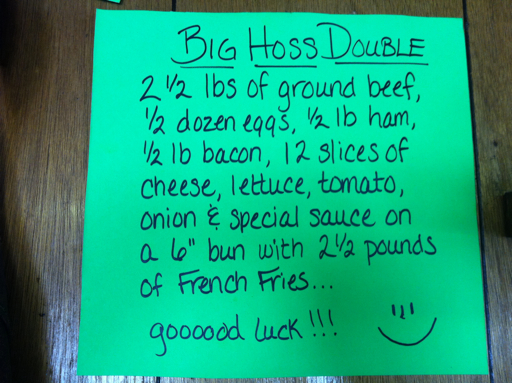 BIG HOSS DOUBLE
2 1/2 lbs of ground beef,
1/2 dozen eggs, 1/2 lb ham,
1/2 lb bacon, 12 slices of
cheese, lettuce, tomato,
onion & special sauce on
a 6" bun with 2 1/2 pounds
of French Fries...
goooood luck!!!